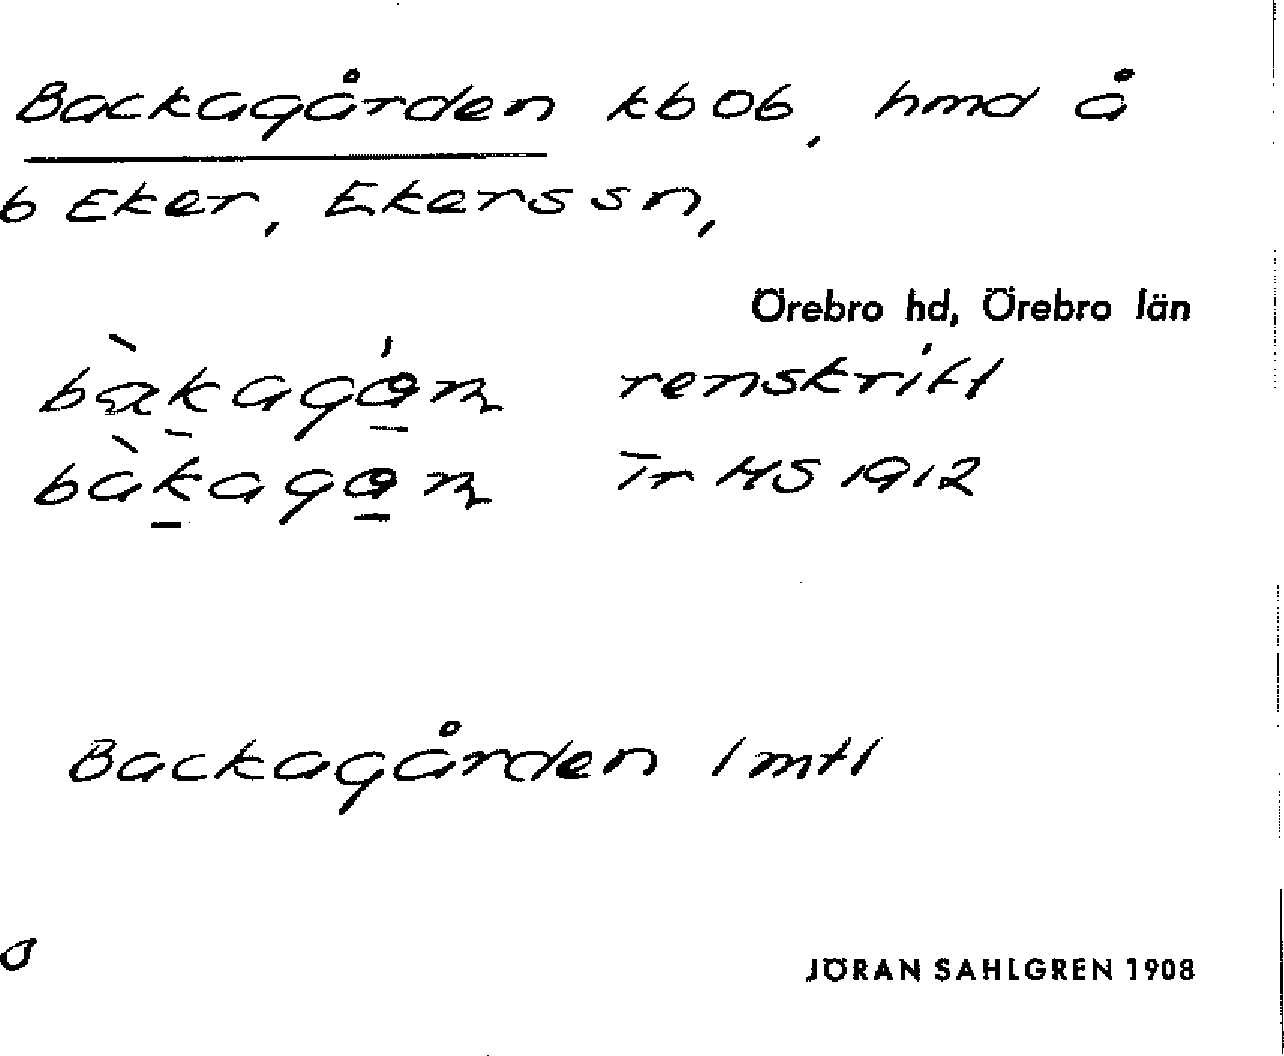 Backagården kbOb, hmd å
b Eker, Ekers sn,
Örebro hd, Örebro län
bàkagån renskrift
bàkagån Tr HS 1912
Backagården 1 mtl
JÖRAN SAHLGREN 1908